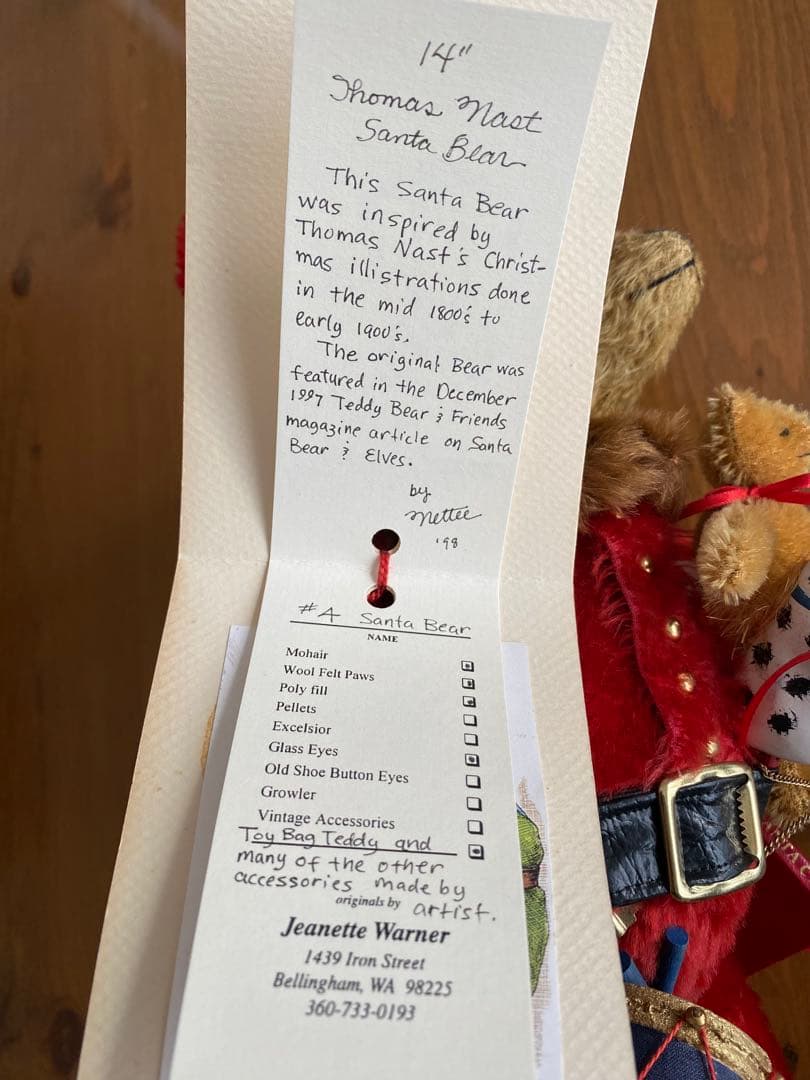 14"
Thomas Nast
Santa Bear
This Santa Bear
was inspired by
Thomas Nast's Christ-
mas illistrations done
in the mid 1800's to
early 1900's.
The original Bear was
featured in the December
1997 Teddy Bear & Friends
magazine article on Santa
Bear & Elves.
by
Mettee
'98
#4 Santa Bear
NAME
Mohair
Wool Felt Paws
Poly fill
Pellets
Excelsior
Glass Eyes
Old Shoe Button Eyes
Growler
Vintage Accessories
Toy Bag Teddy and
many of the other
accessories made by
originals by artist.
Jeanette Warner
1439 Iron Street
Bellingham, WA 98225
360-733-0193